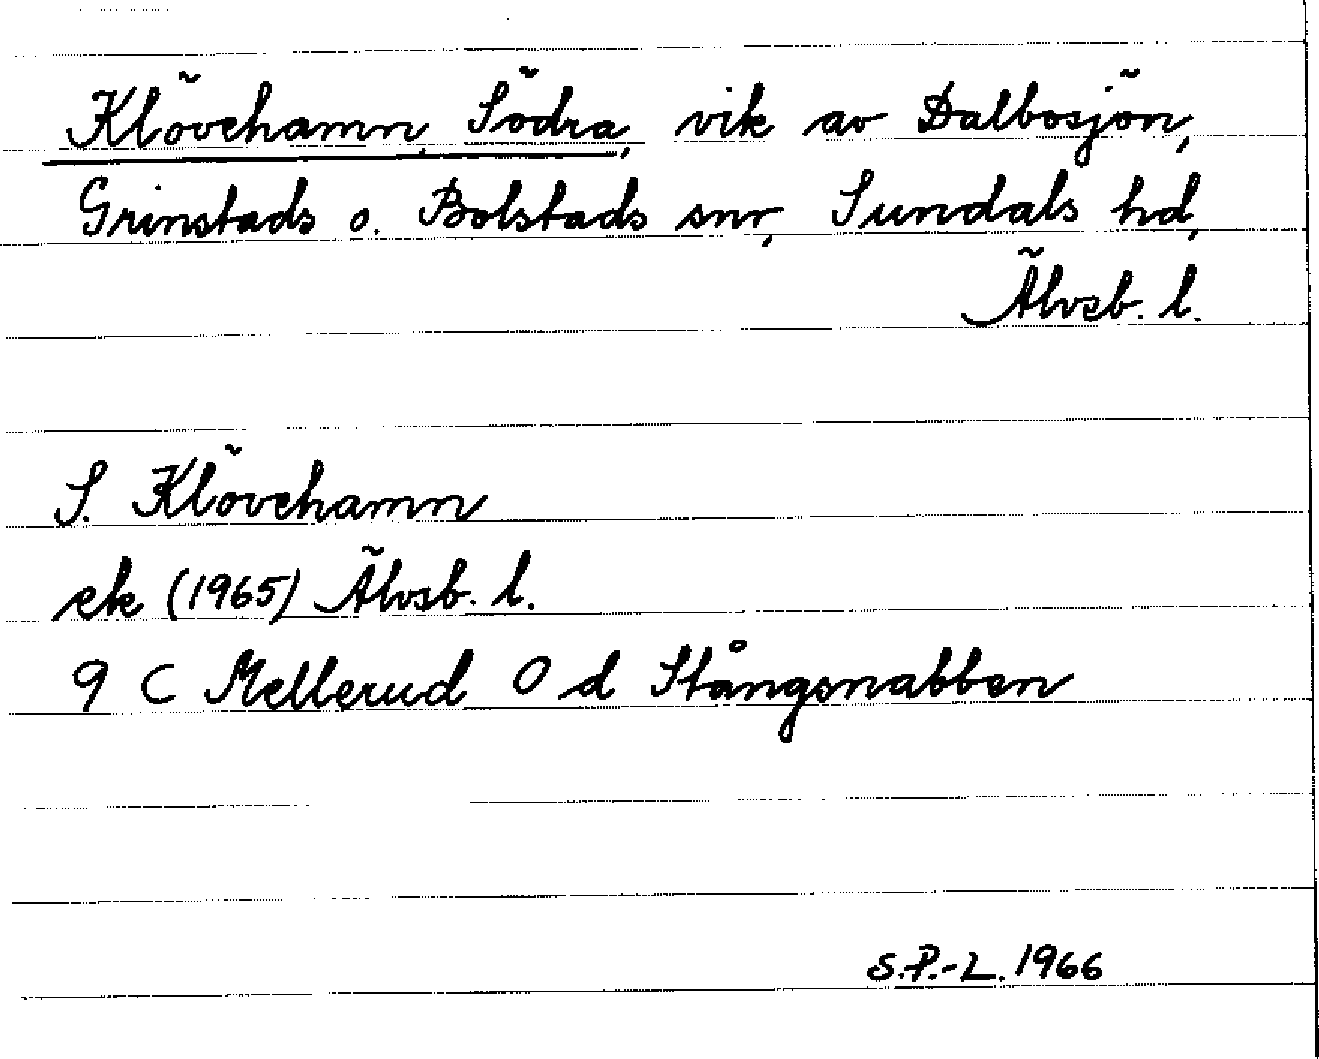 Klövehamn, Södra, vik av Dalbosjön,
Grinstads o. Bolstads snr, Sundals hd,
Älvsb. l.
S. Klövehamn
ek (1965) Älvsb. l.
9 C Mellerud O d Stångsnabben
S.P.-L. 1966